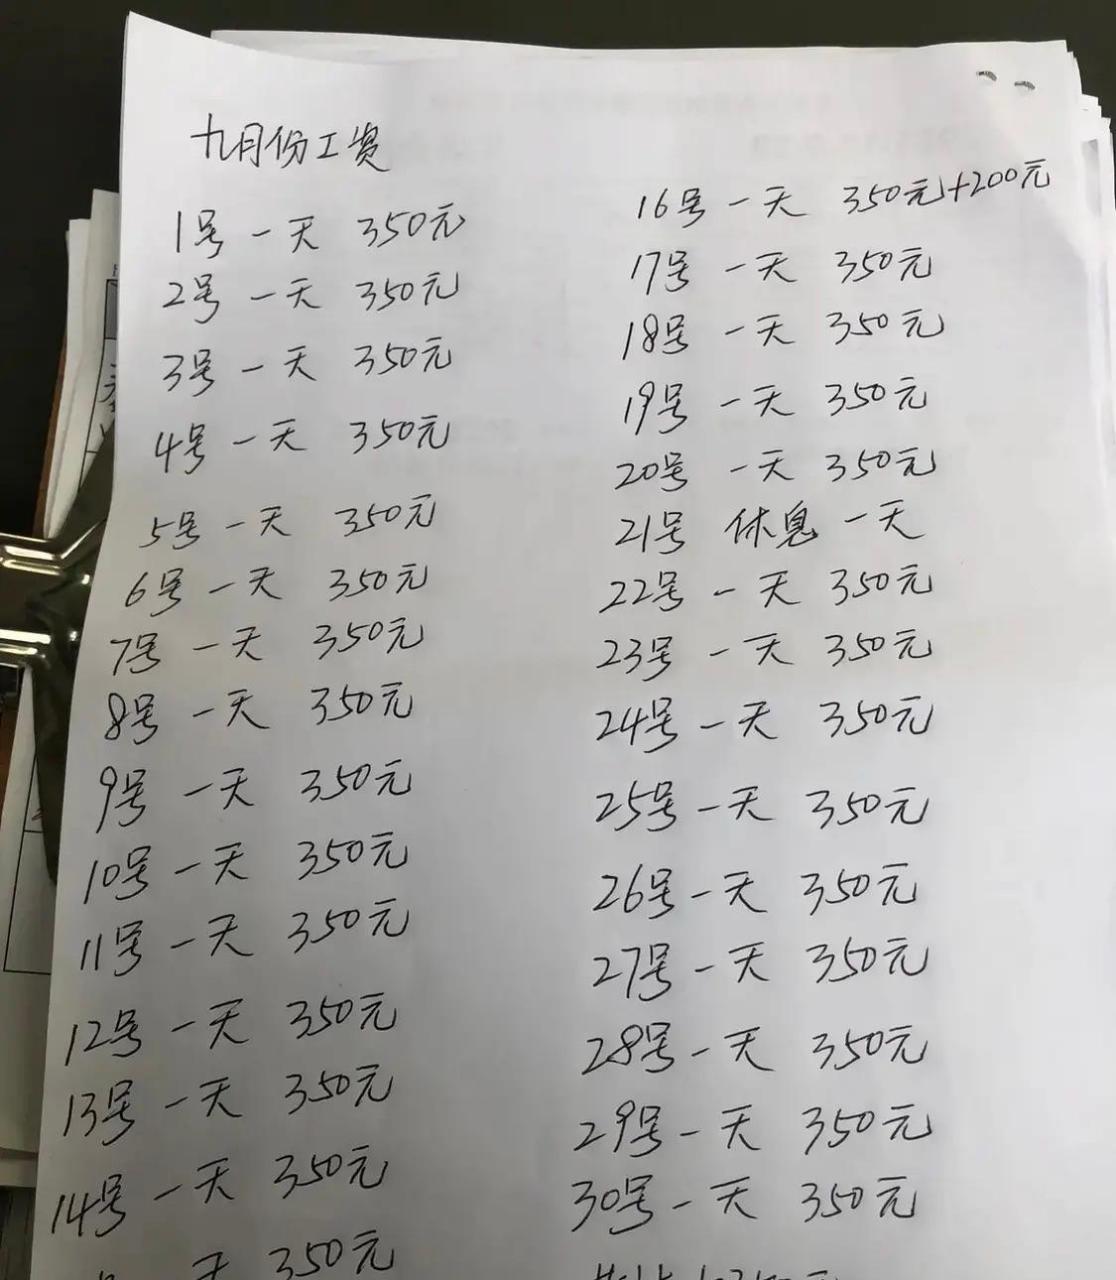 九月份工资
1号 一天 350元
2号 一天 350元
3号 一天 350元
4号 一天 350元
5号 一天 350元
6号 一天 350元
7号 一天 350元
8号 一天 350元
9号 一天 350元
10号 一天 350元
11号 一天 350元
12号 一天 350元
13号 一天 350元
14号 一天 350元
一天 350元
16号 一天 350元+200元
17号 一天 350元
18号 一天 350元
19号 一天 350元
20号 一天 350元
21号 休息 一天
22号 一天 350元
23号 一天 350元
24号 一天 350元
25号 一天 350元
26号 一天 350元
27号 一天 350元
28号 一天 350元
29号 一天 350元
30号 一天 350元